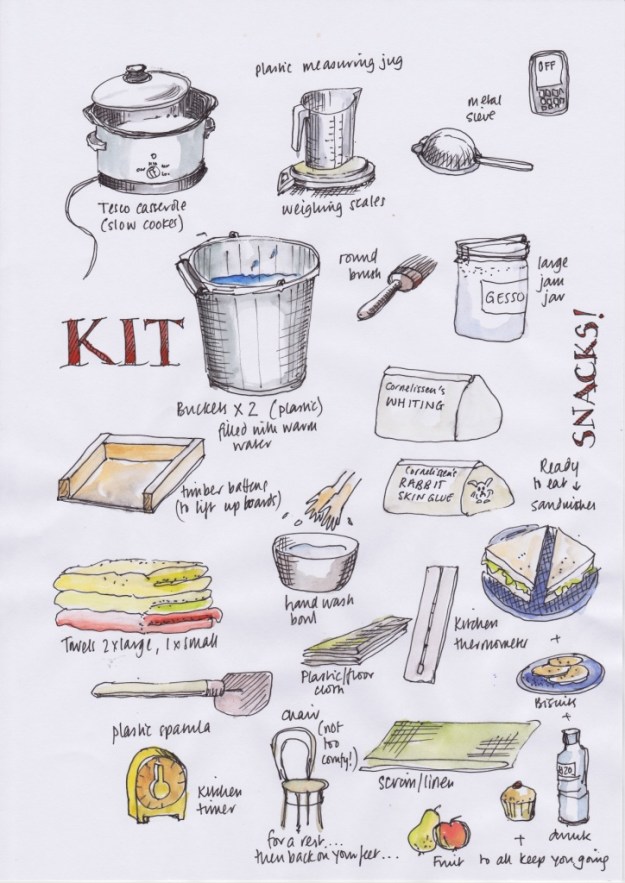 plastic measuring jug
OFF
metal
sieve
Tesco casserole
(slow cooker)
weighing scales
round
brush
GESSO
large
jam
jar
KIT
SNACKS!
Buckets x 2 (plastic)
filled with warm
water
Cornelissen's
WHITING
timber battens
(to lift up boards)
Cornelissen's
RABBIT
SKIN GLUE
Ready
to eat ↓
sandwiches
hand wash
bowl
Towels 2 x large, 1 x small
Plastic/floor
cloth
Kitchen
thermometer
+
Biscuits
+
plastic spatula
chair
(not
too
comfy!)
scrim/linen
H2O
Kitchen
timer
for a rest...
then back on your feet...
Fruit
+
drink
to all keep you going